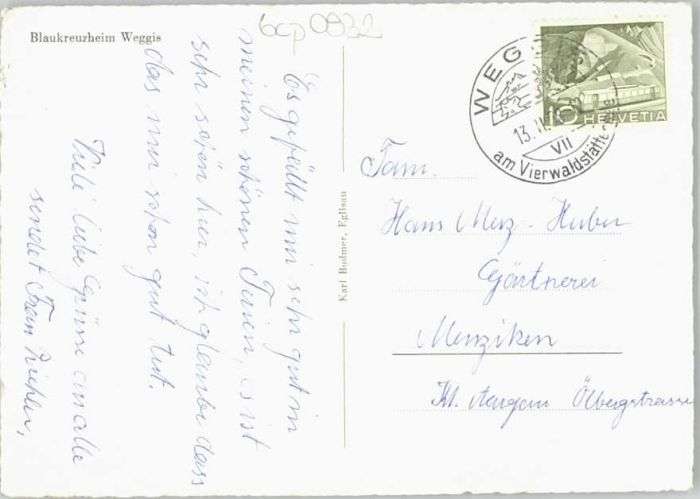 Blaukreuzheim Weggis
bcp 0932
Es gefällt mir sehr gut in
meinen schönen Ferien, es ist
sehr schön hier, ich glaube dass
das mir schon gut tut.
Viele liebe Grüsse an alle
sendet Frau
Karl Bodmer, Eglisau
WEGGIS
13. VII
am Vierwaldstätte
10 HELVETIA
Fam.
Hans Merz-Huber
Gärtnerei
Menziken
Kt. Aargau Ölbergstrasse